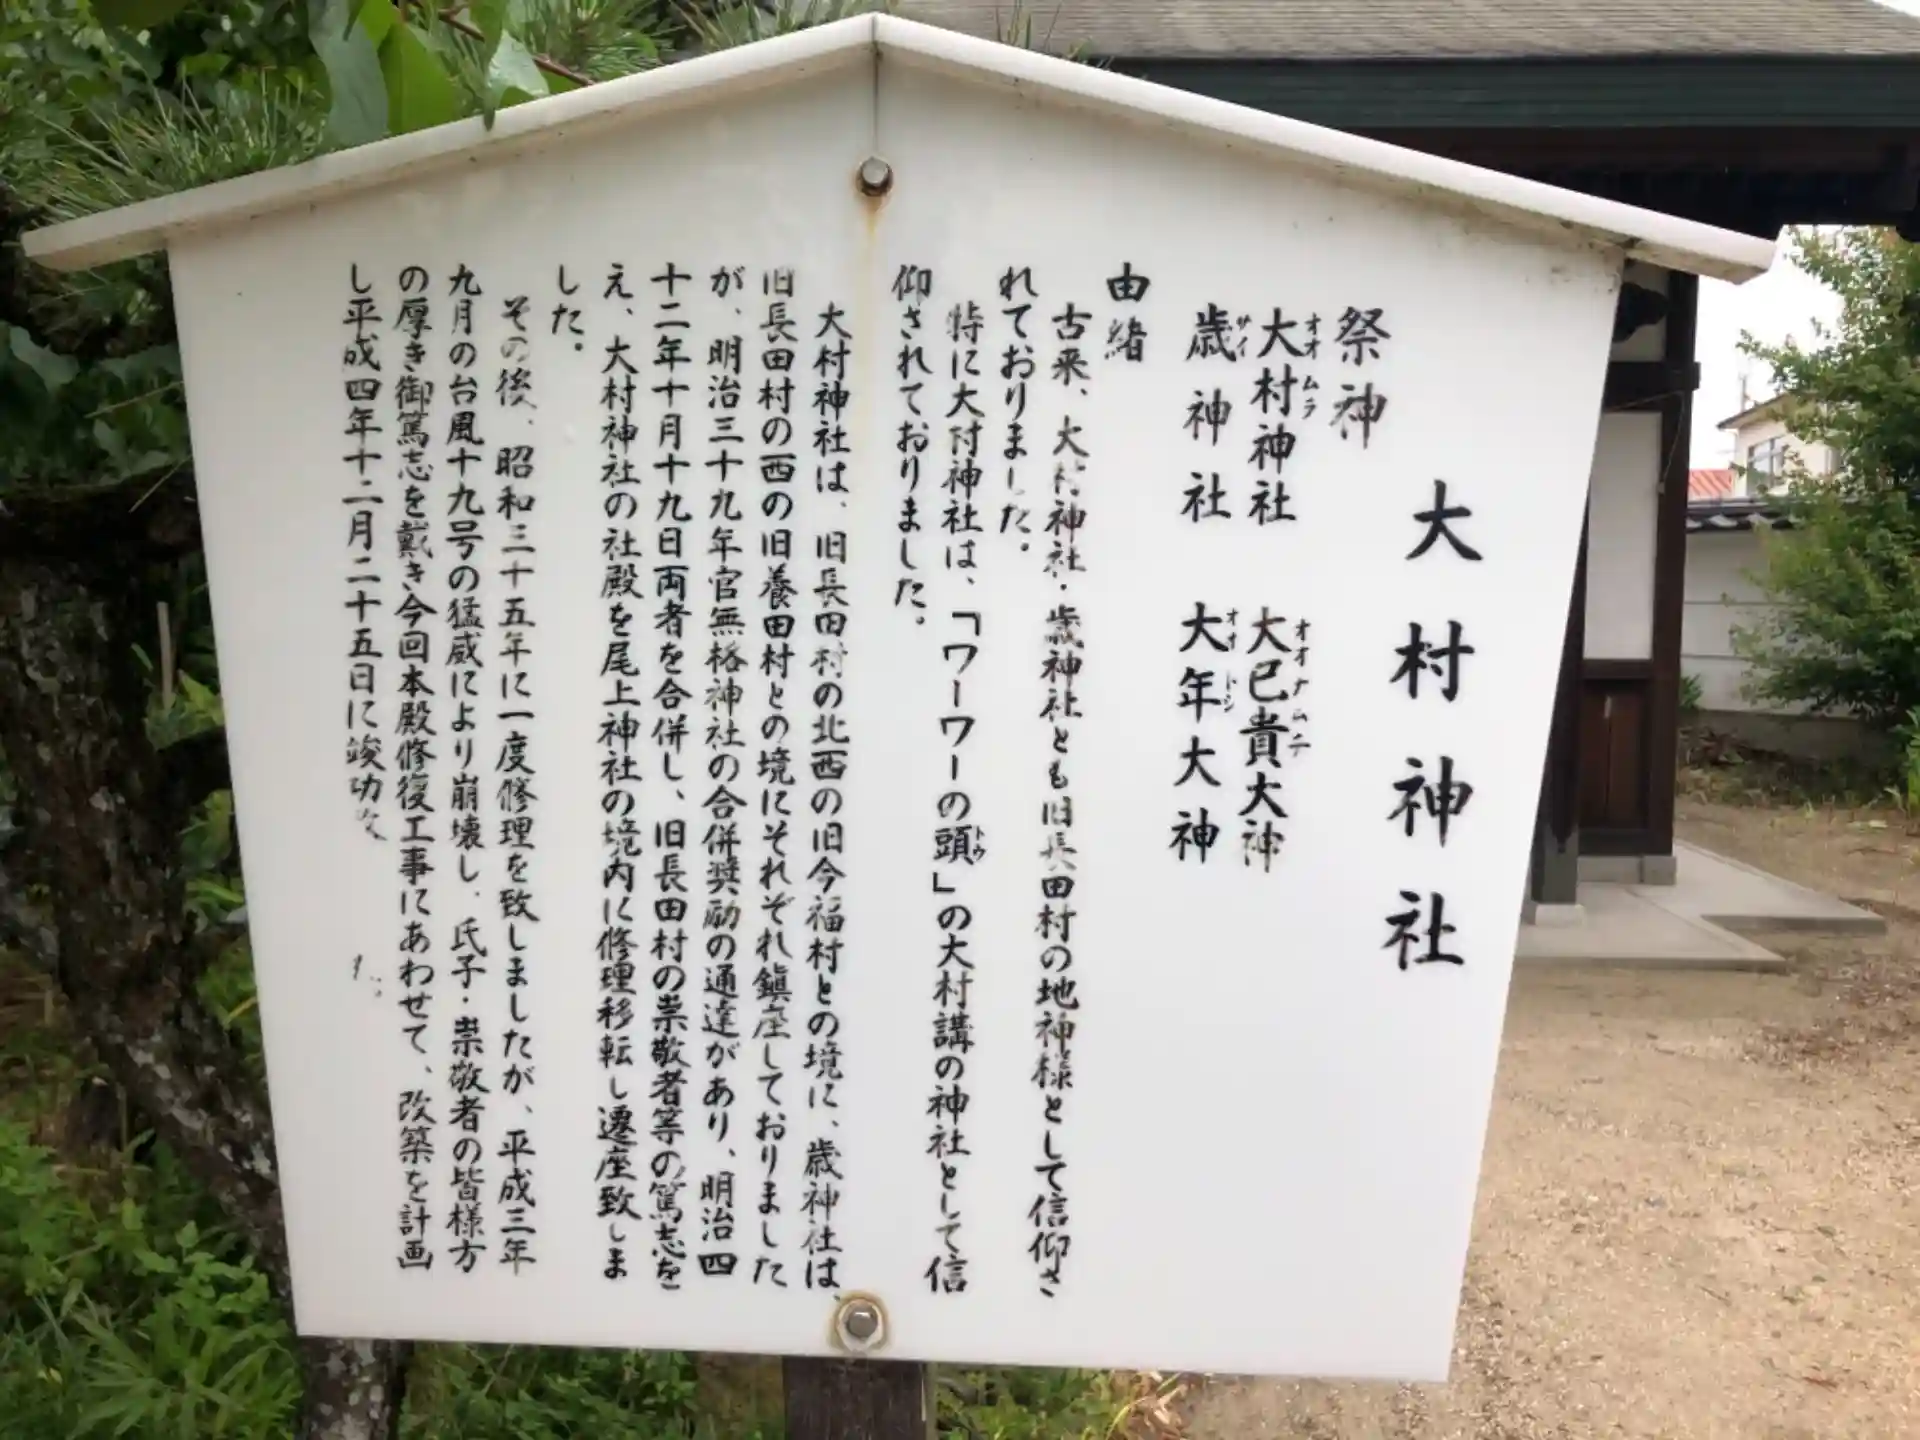 大村神社
祭神
大村神社 大己貴大神
オオ ムラ オオナムチ
歳神社 大年大神
サイ オオ トシ
由緒
古来、大村神社・歳神社とも旧長田村の地神様として信仰さ
れておりました。
特に大村神社は、「ワーワーの頭」の大村講の神社として信
トウ
仰されておりました。
大村神社は、旧長田村の北西の旧今福村との境に、歳神社は、
旧長田村の西の旧養田村との境にそれぞれ鎮座しておりました
が、明治三十九年官無格神社の合併奨励の通達があり、明治四
十二年十月十九日両者を合併し、旧長田村の崇敬者等の篤志を
え、大村神社の社殿を尾上神社の境内に修理移転し遷座致しま
した。
その後、昭和三十五年に一度修理を致しましたが、平成三年
九月の台風十九号の猛威により崩壊し、氏子・崇敬者の皆様方
の厚き御篤志を戴き今回本殿修復工事にあわせて、改築を計画
し平成四年十二月二十五日に竣功 た。